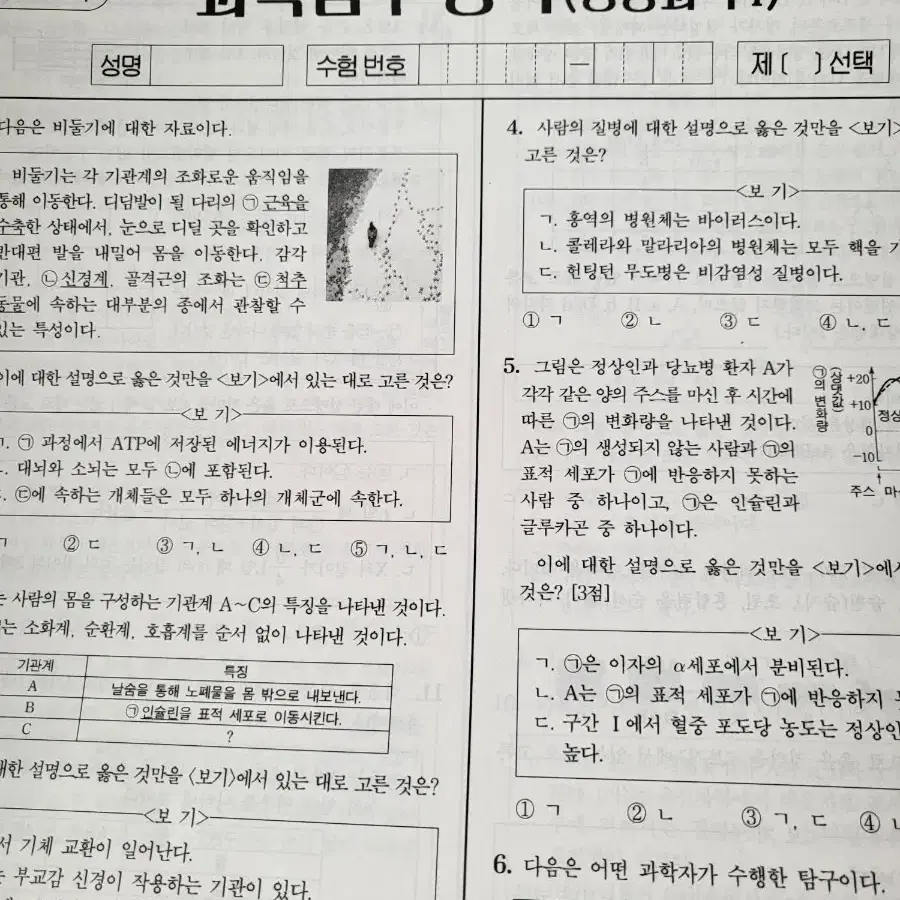 성명
수험 번호
—
제 [ ] 선택
다음은 비둘기에 대한 자료이다.
비둘기는 각 기관계의 조화로운 움직임을
통해 이동한다. 디딤발이 될 다리의 ㉠ 근육을
수축한 상태에서, 눈으로 디딜 곳을 확인하고
반대편 발을 내밀어 몸을 이동한다. 감각
기관, ㉡ 신경계, 골격근의 조화는 ㉢ 척추
동물에 속하는 대부분의 종에서 관찰할 수
있는 특성이다.
이에 대한 설명으로 옳은 것만을 <보기>에서 있는 대로 고른 것은?
<보 기>
ㄱ. ㉠ 과정에서 ATP에 저장된 에너지가 이용된다.
ㄴ. 대뇌와 소뇌는 모두 ㉡에 포함된다.
ㄷ. ㉢에 속하는 개체들은 모두 하나의 개체군에 속한다.
ㄱ ② ㄷ ③ ㄱ, ㄴ ④ ㄴ, ㄷ ⑤ ㄱ, ㄴ, ㄷ
는 사람의 몸을 구성하는 기관계 A~C의 특징을 나타낸 것이다.
는 소화계, 순환계, 호흡계를 순서 없이 나타낸 것이다.
기관계 특징
A 날숨을 통해 노폐물을 몸 밖으로 내보낸다.
B ㉠ 인슐린을 표적 세포로 이동시킨다.
C ?
대한 설명으로 옳은 것만을 <보기>에서 있는 대로 고른 것은?
<보 기>
서 기체 교환이 일어난다.
는 부교감 신경이 작용하는 기관이 있다.
4. 사람의 질병에 대한 설명으로 옳은 것만을 <보기>
고른 것은?
<보 기>
ㄱ. 홍역의 병원체는 바이러스이다.
ㄴ. 콜레라와 말라리아의 병원체는 모두 핵을 가
ㄷ. 헌팅턴 무도병은 비감염성 질병이다.
① ㄱ ② ㄴ ③ ㄷ ④ ㄴ, ㄷ
5. 그림은 정상인과 당뇨병 환자 A가
각각 같은 양의 주스를 마신 후 시간에
따른 ㉠의 변화량을 나타낸 것이다.
A는 ㉠의 생성되지 않는 사람과 ㉠의
표적 세포가 ㉠에 반응하지 못하는
사람 중 하나이고, ㉠은 인슐린과
글루카곤 중 하나이다.
㉠의 변화량
(상댓값)
+20
+10
0
-10
정상
주스 마
이에 대한 설명으로 옳은 것만을 <보기>에서
것은? [3점]
<보 기>
ㄱ. ㉠은 이자의 α세포에서 분비된다.
ㄴ. A는 ㉠의 표적 세포가 ㉠에 반응하지
ㄷ. 구간 Ⅰ에서 혈중 포도당 농도는 정상인
높다.
① ㄱ ② ㄴ ③ ㄱ, ㄷ ④ ㄴ
6. 다음은 어떤 과학자가 수행한 탐구이다.